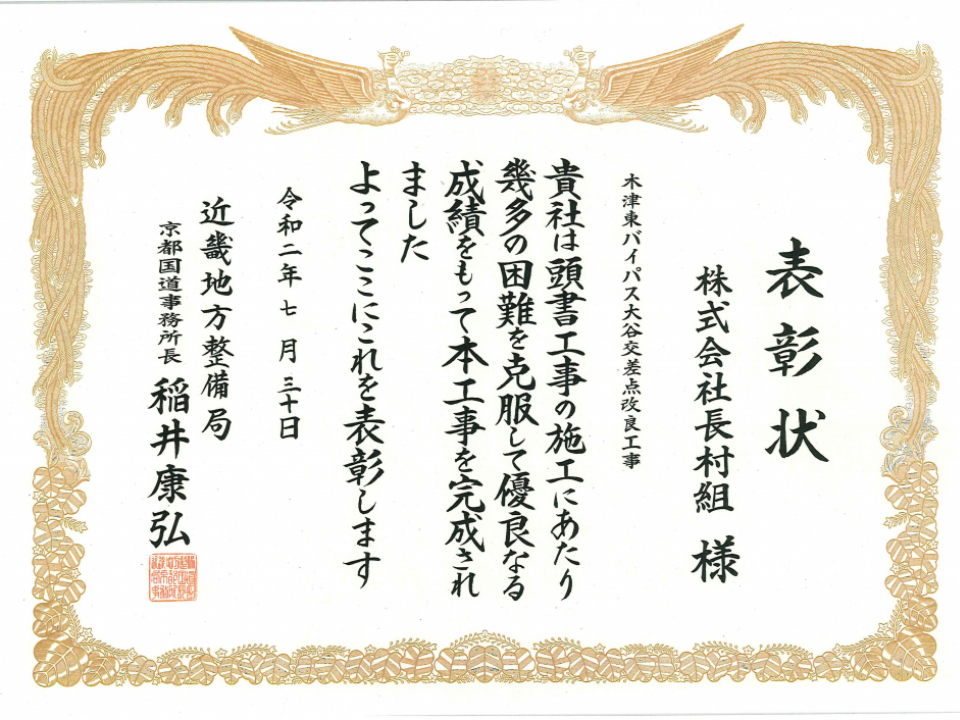 表彰状
株式会社長村組 様
木津東バイパス大谷交差点改良工事
貴社は頭書工事の施工にあたり
幾多の困難を克服して優良なる
成績をもって本工事を完成され
ました
よってここにこれを表彰します
令和二年 七 月 三十日
近畿地方整備局
京都国道事務所長 稲井康弘